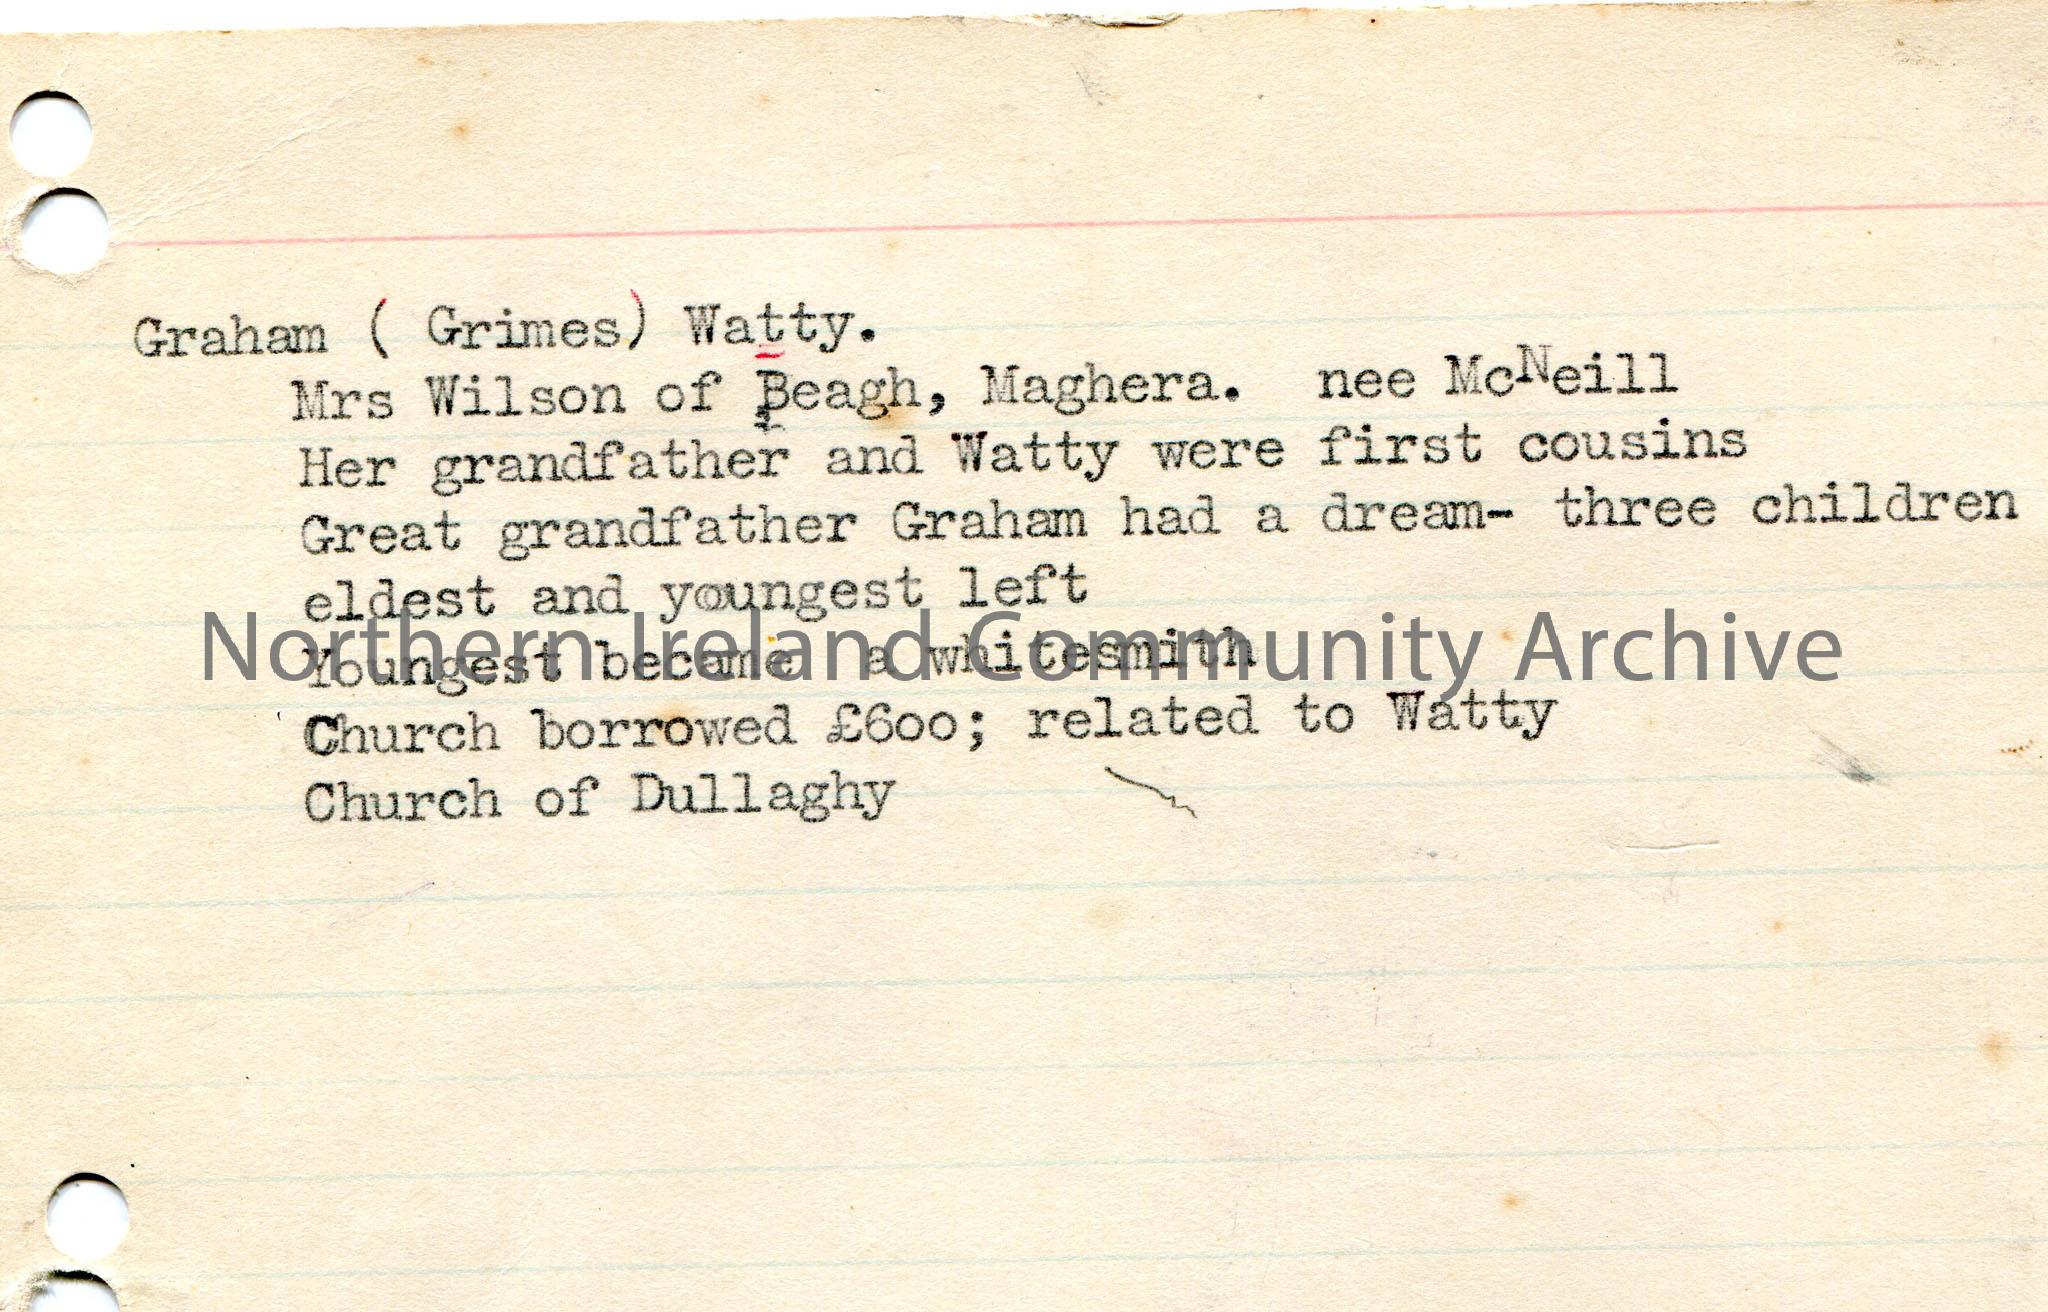 Graham ( Grimes) Watty.
Mrs Wilson of Beagh, Maghera. nee McNeill
Her grandfather and Watty were first cousins
Great grandfather Graham had a dream- three children
eldest and youngest left
Youngest became a whitesmith
Northern Ireland Community Archive
Church borrowed £600; related to Watty
Church of Dullaghy